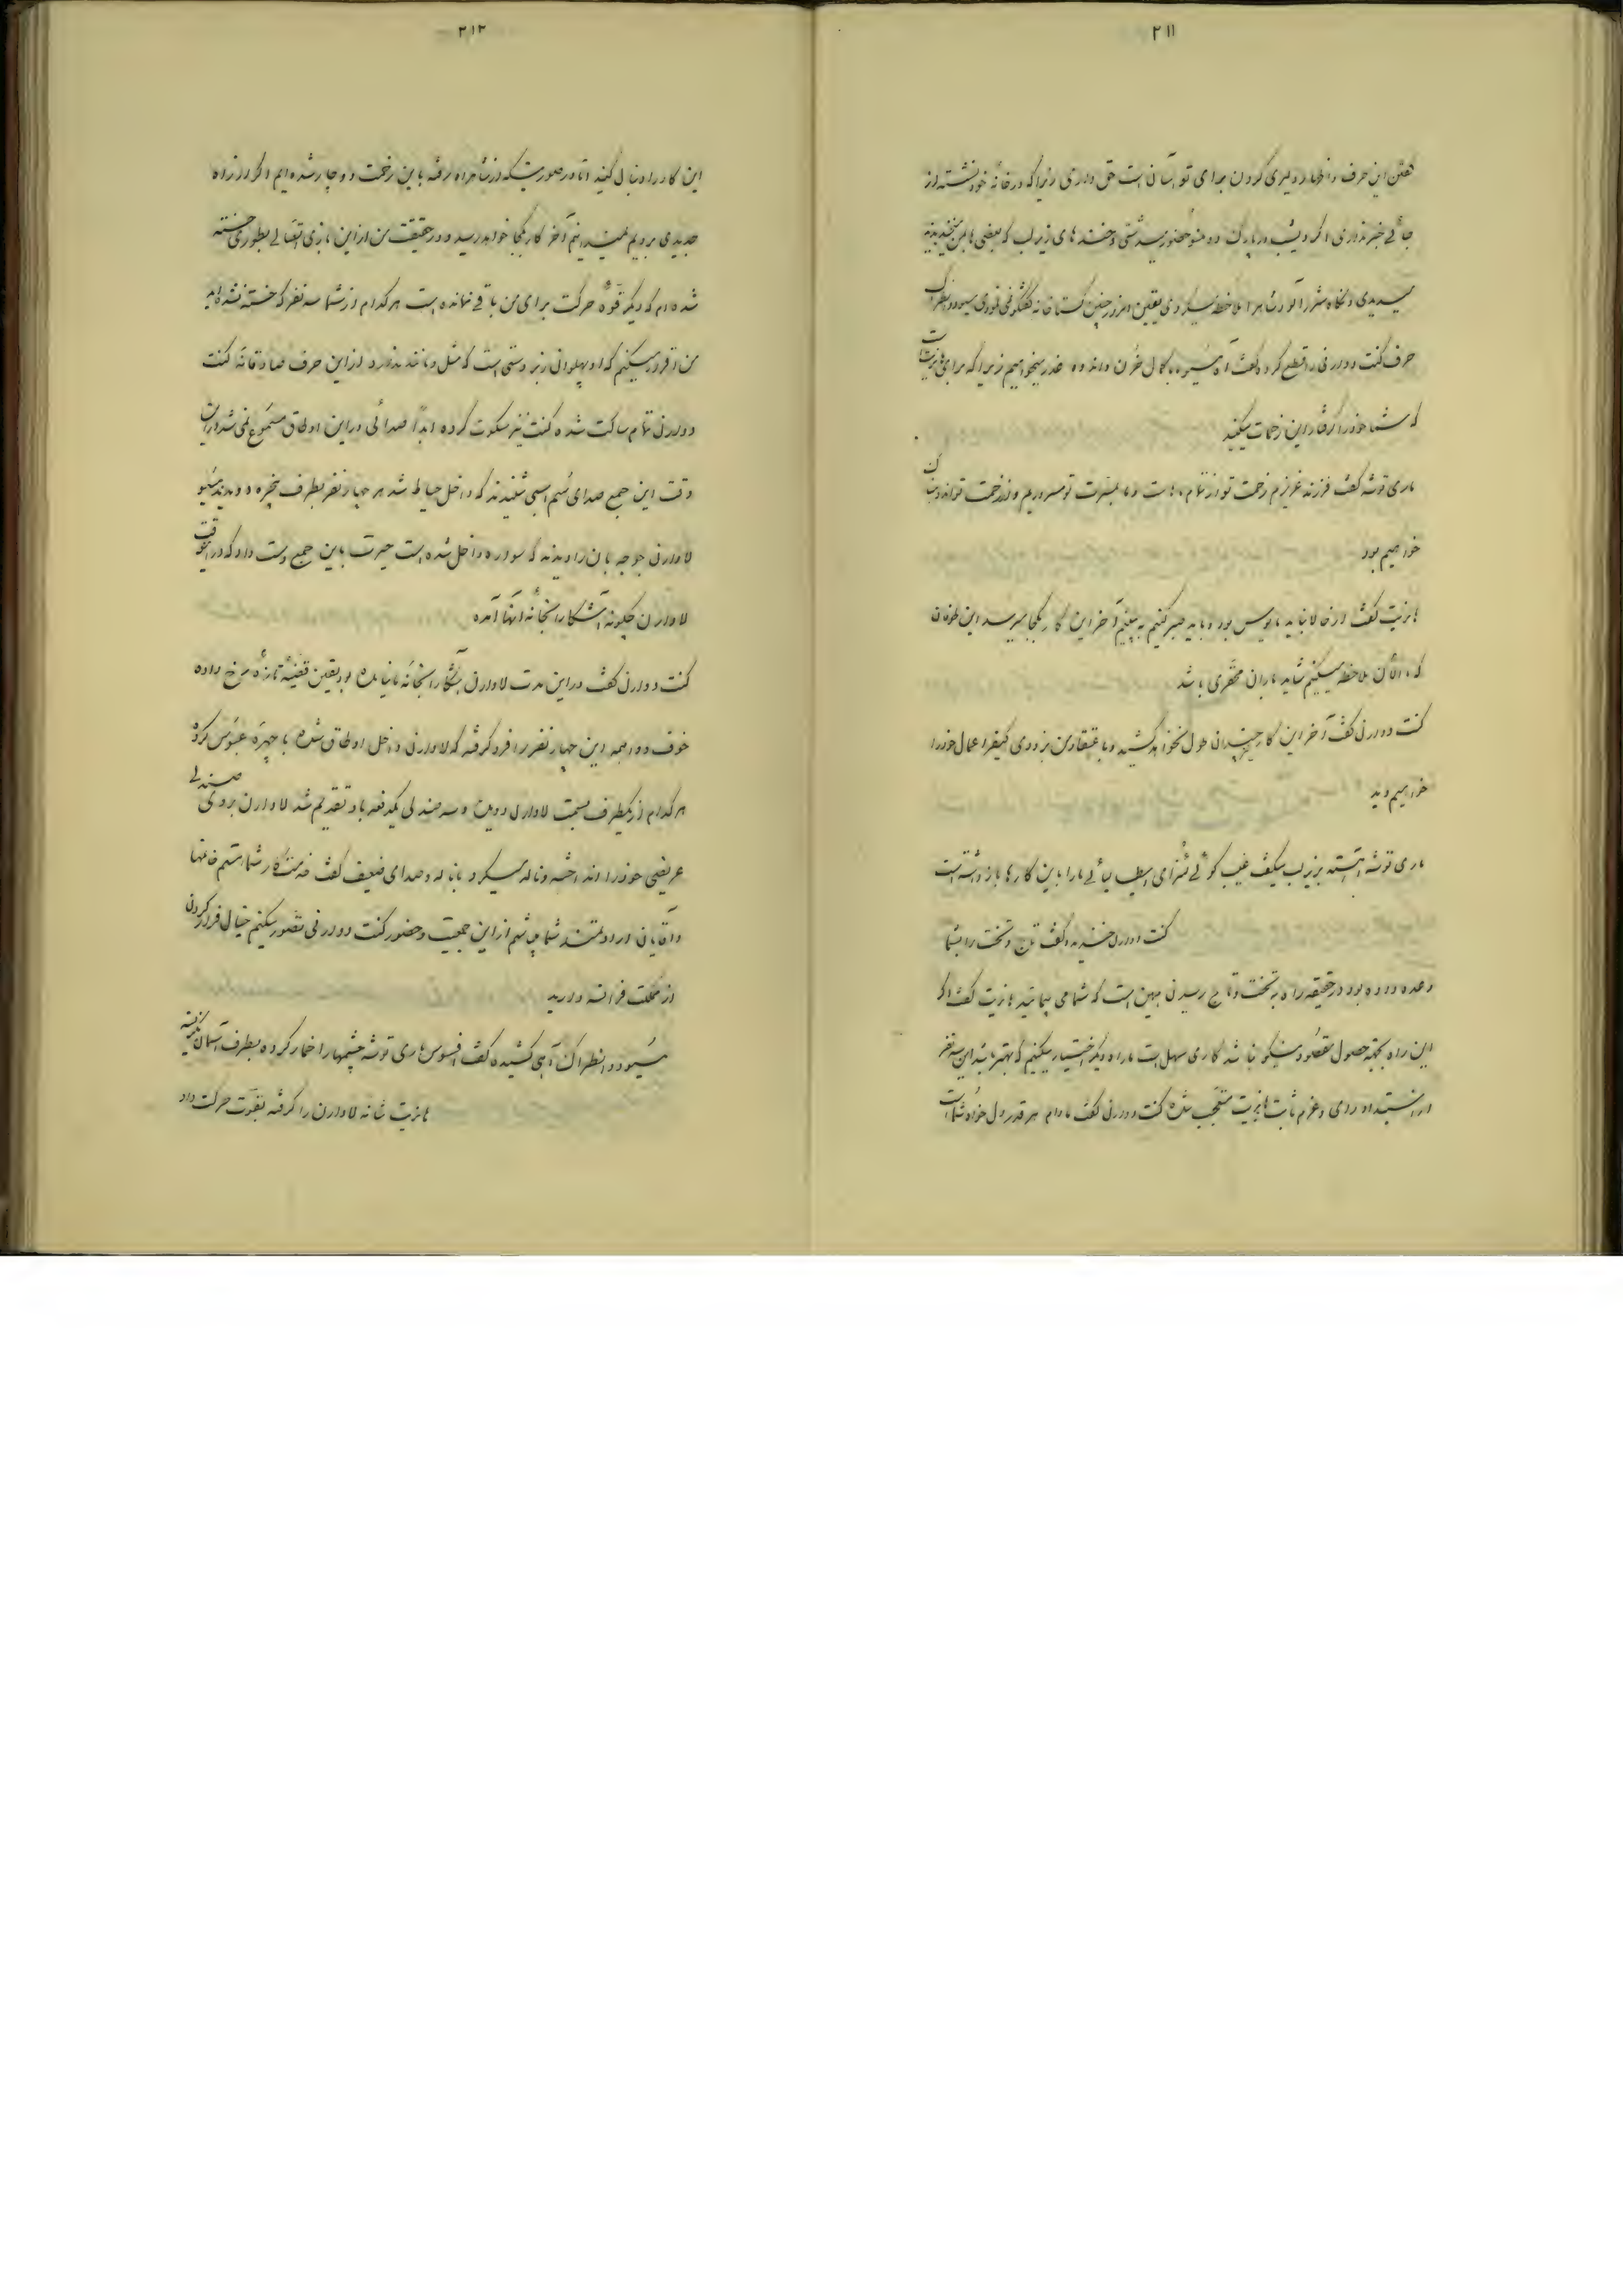 ۲۱۱
گفتن این حرف و اظهار دلیری کردن برای تو آسان است حق داری زیرا که در خانه خود نشسته از
جائی خبر نداری اگر دیشب در پارک دو منو حضور میداشتی و خنده های زیر لب که بعضی با من میخندیدند
میدیدی و نگاه شرر آلود شاه را ملاحظه میکردی یقین امروز چنین گستاخانه گفتگو نمی نمودی مسیو دوانطراک
حرف کنت دوورنی را قطع کرد و گفت آه مسیو با کمال حزن و اندوه عذر میخواهیم زیرا که برای هانریت است
که شما خود را گرفتار این زحمات میکنید
ماری توشه گفت فرزند عزیزم زحمت تو از تمام ماهاست و ما بمسرت تو مسروریم و از زحمت تو اندوهناک
خواهیم بود
هانریت گفت از حالا نباید مایوس بود و باید صبر کنیم به بینیم آخر این کار بکجا میرسد این طوفان
که الآن ملاحظه میکنیم شاید باران محقری باشد
کنت دوورنی گفت آخر این کار چندان طول نخواهد کشید و باعتقاد من بزودی کیفر اعمال خود را
خواهیم دید
ماری توشه آهسته بزیر لب میگفت غیب گوئی سزای ایطالیائی ما را باین کارها بازداشته است
کنت دوورنی خندید و گفت تاج و تخت را بشما
وعده داده بود در حقیقه راه به تخت و تاج رسیدن همین است که شما می پیمائید هانریت گفت اگر
این راه بجهته حصول مقصود نیکو نباشد کاری سهل است ما راه دیگر اختیار میکنیم که بهتر باشد این سه نفر
از استبداد رای و عزم ثابت هانریت متعجب شده کنت دوورنی گفت مادام هر قدر دل خواه شماست
۲۱۲
این کار را دنبال کنید اما در صورتیکه از شاهراه رفته باین زحمت دوچار شده ایم اگر از راه
جدیدی برویم نمیدانیم آخر کار بکجا خواهد رسید و در حقیقت من از این بازی اتصالی بطوری خسته
شده ام که دیگر قوه حرکت برای من باقی نمانده است هر کدام از شما سه نفر که خسته نشده اید
من اقرار میکنم که او پهلوانی زبردستی است که مثل و مانند ندارد از این حرف صادقانه کنت
دوورنی تمام ساکت شده کنت نیز سکوت کرده ابداً صدائی در این اوطاق مسموع نمی شد در این
وقت این جمع صدای سم اسبی شنیدند که داخل حیاط شد هر چهار نفر بطرف پنجره دویدند مسیو
لاوارن جوجه بان را دیدند که سواره داخل شده است حیرت باین جمع دست داد که در این وقت
لاوارن چگونه آشکارا بخانه آنها آمده
کنت دوورنی گفت در این مدت لاوارن آشکارا بخانه ما نیامده بود یقین قضیه تازه رخ داده
خوف و واهمه این چهار نفر را فرو گرفته که لاوارن داخل اوطاق شده با چهره عبوس کرده
هر کدام از یکطرف بسمت لاوارن دویدن و سه صندلی یکدفعه باو تقدیم شد لاوارن بروی صندلی
عریضی خود را انداخته و ناله میکرد با ناله و صدای ضعیف گفت خدمتکار شما هستم خانمها
و آقایان ارادتمند شما میباشم از این جمعیت و حضور کنت دوورنی تصور میکنم خیال فرار کردن
از مملکت فرانسه دارید
مسیو دوانطراک آهی کشیده گفت افسوس ماری توشه چشمها را خمار کرده بطرف آسمان نگریسته
هانریت شانه لاوارن را گرفته بقوت حرکت داد